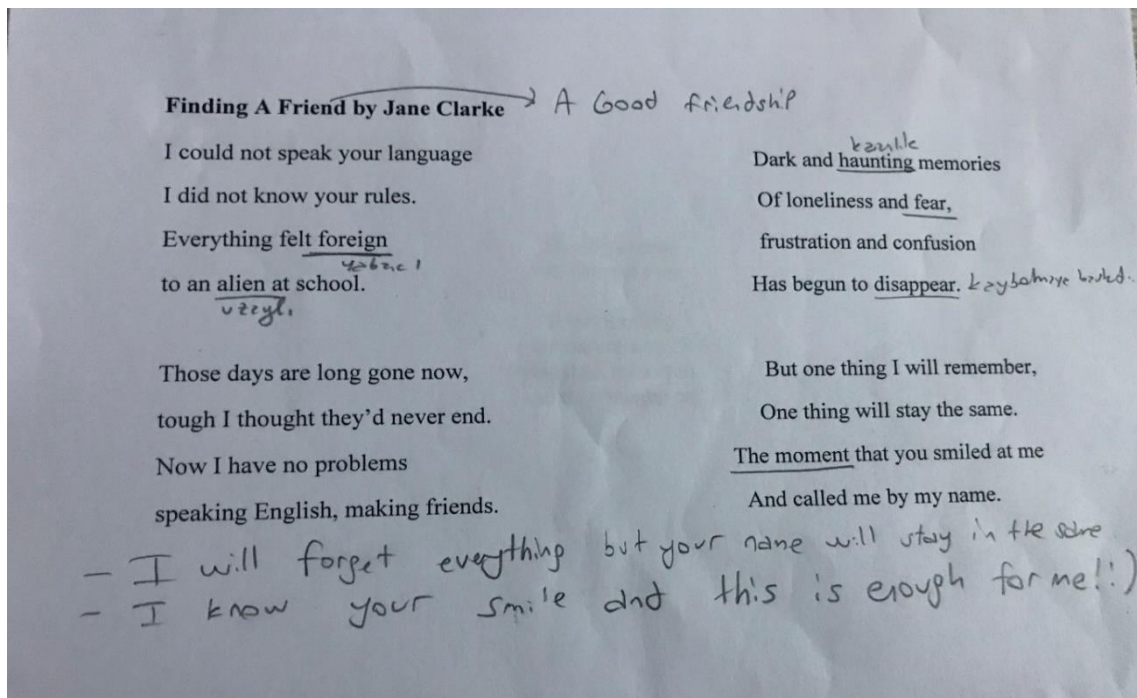 Finding A Friend by Jane Clarke → A Good friendship
I could not speak your language
I did not know your rules.
Everything felt foreign
yabancı
to an alien at school.
uzaylı
Those days are long gone now,
tough I thought they'd never end.
Now I have no problems
speaking English, making friends.
Dark and haunting memories
Of loneliness and fear,
frustration and confusion
Has begun to disappear.
But one thing I will remember,
One thing will stay the same.
The moment that you smiled at me
And called me by my name.
- I will forget everything but your name will stay in the same
- I know your smile and this is enough for me! :)